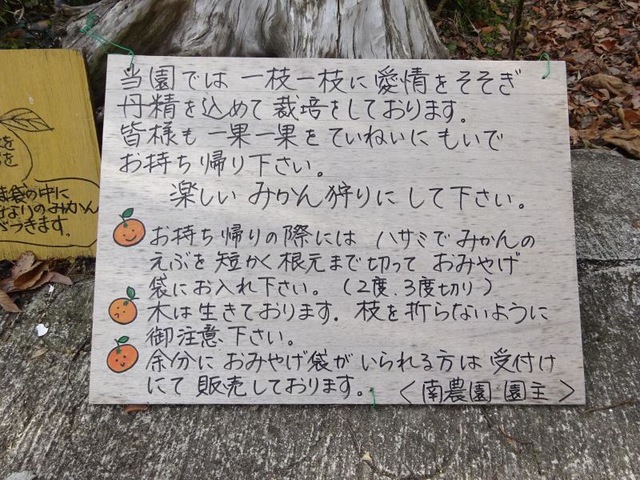 当園では一枝一枝に愛情をそそぎ
丹精を込めて栽培をしております。
皆様も一果一果をていねいにもいで
お持ち帰り下さい。
楽しいみかん狩りにして下さい。
お持ち帰りの際にはハサミでみかんの
えぶを短かく根元まで切っておみやげ
袋にお入れ下さい。(2度、3度切り)
木は生きております。枝を折らないように
御注意下さい。
余分におみやげ袋がいられる方は受付け
にて販売しております。
<南農園 園主>
袋の中に
なりのみかん
きます。